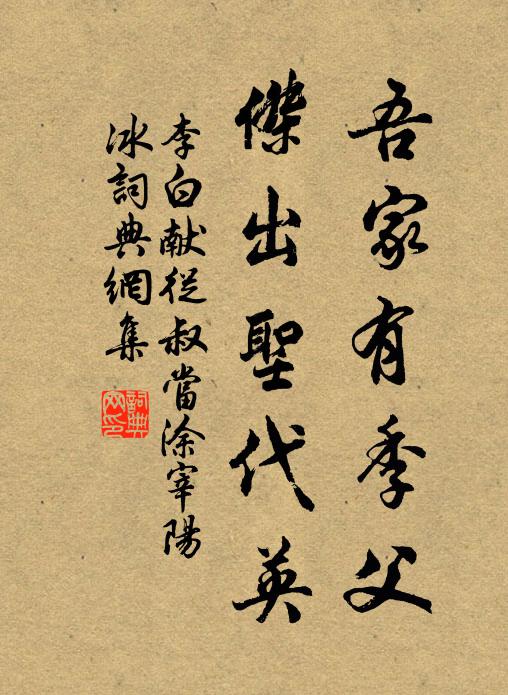 吾家有季父
傑出聖代英
李白献從叔當涂宰陽
冰詞典網集
詞典
网印